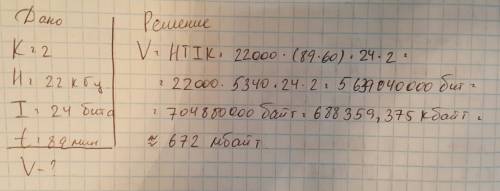 Дано
К = 2
Н = 22 кбц
I = 24 бита
t = 89 мин
V - ?
Решение
V = HTIK = 22000 · (89 · 60) · 24 · 2 =
= 22000 · 5340 · 24 · 2 = 5639040000 бит =
= 704880000 байт = 688359,375 кбайт =
≈ 672 мбайт